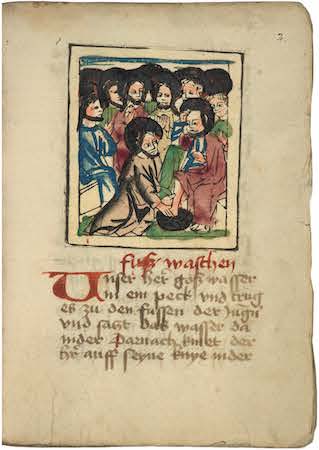 fuß waschen
Unser her goß wasser
in ein peck und trug
es zu den fussen der Jūgn̄
und satzt das wasser da
nider Parnach kniet der
hr̄ auff seyne knye nider